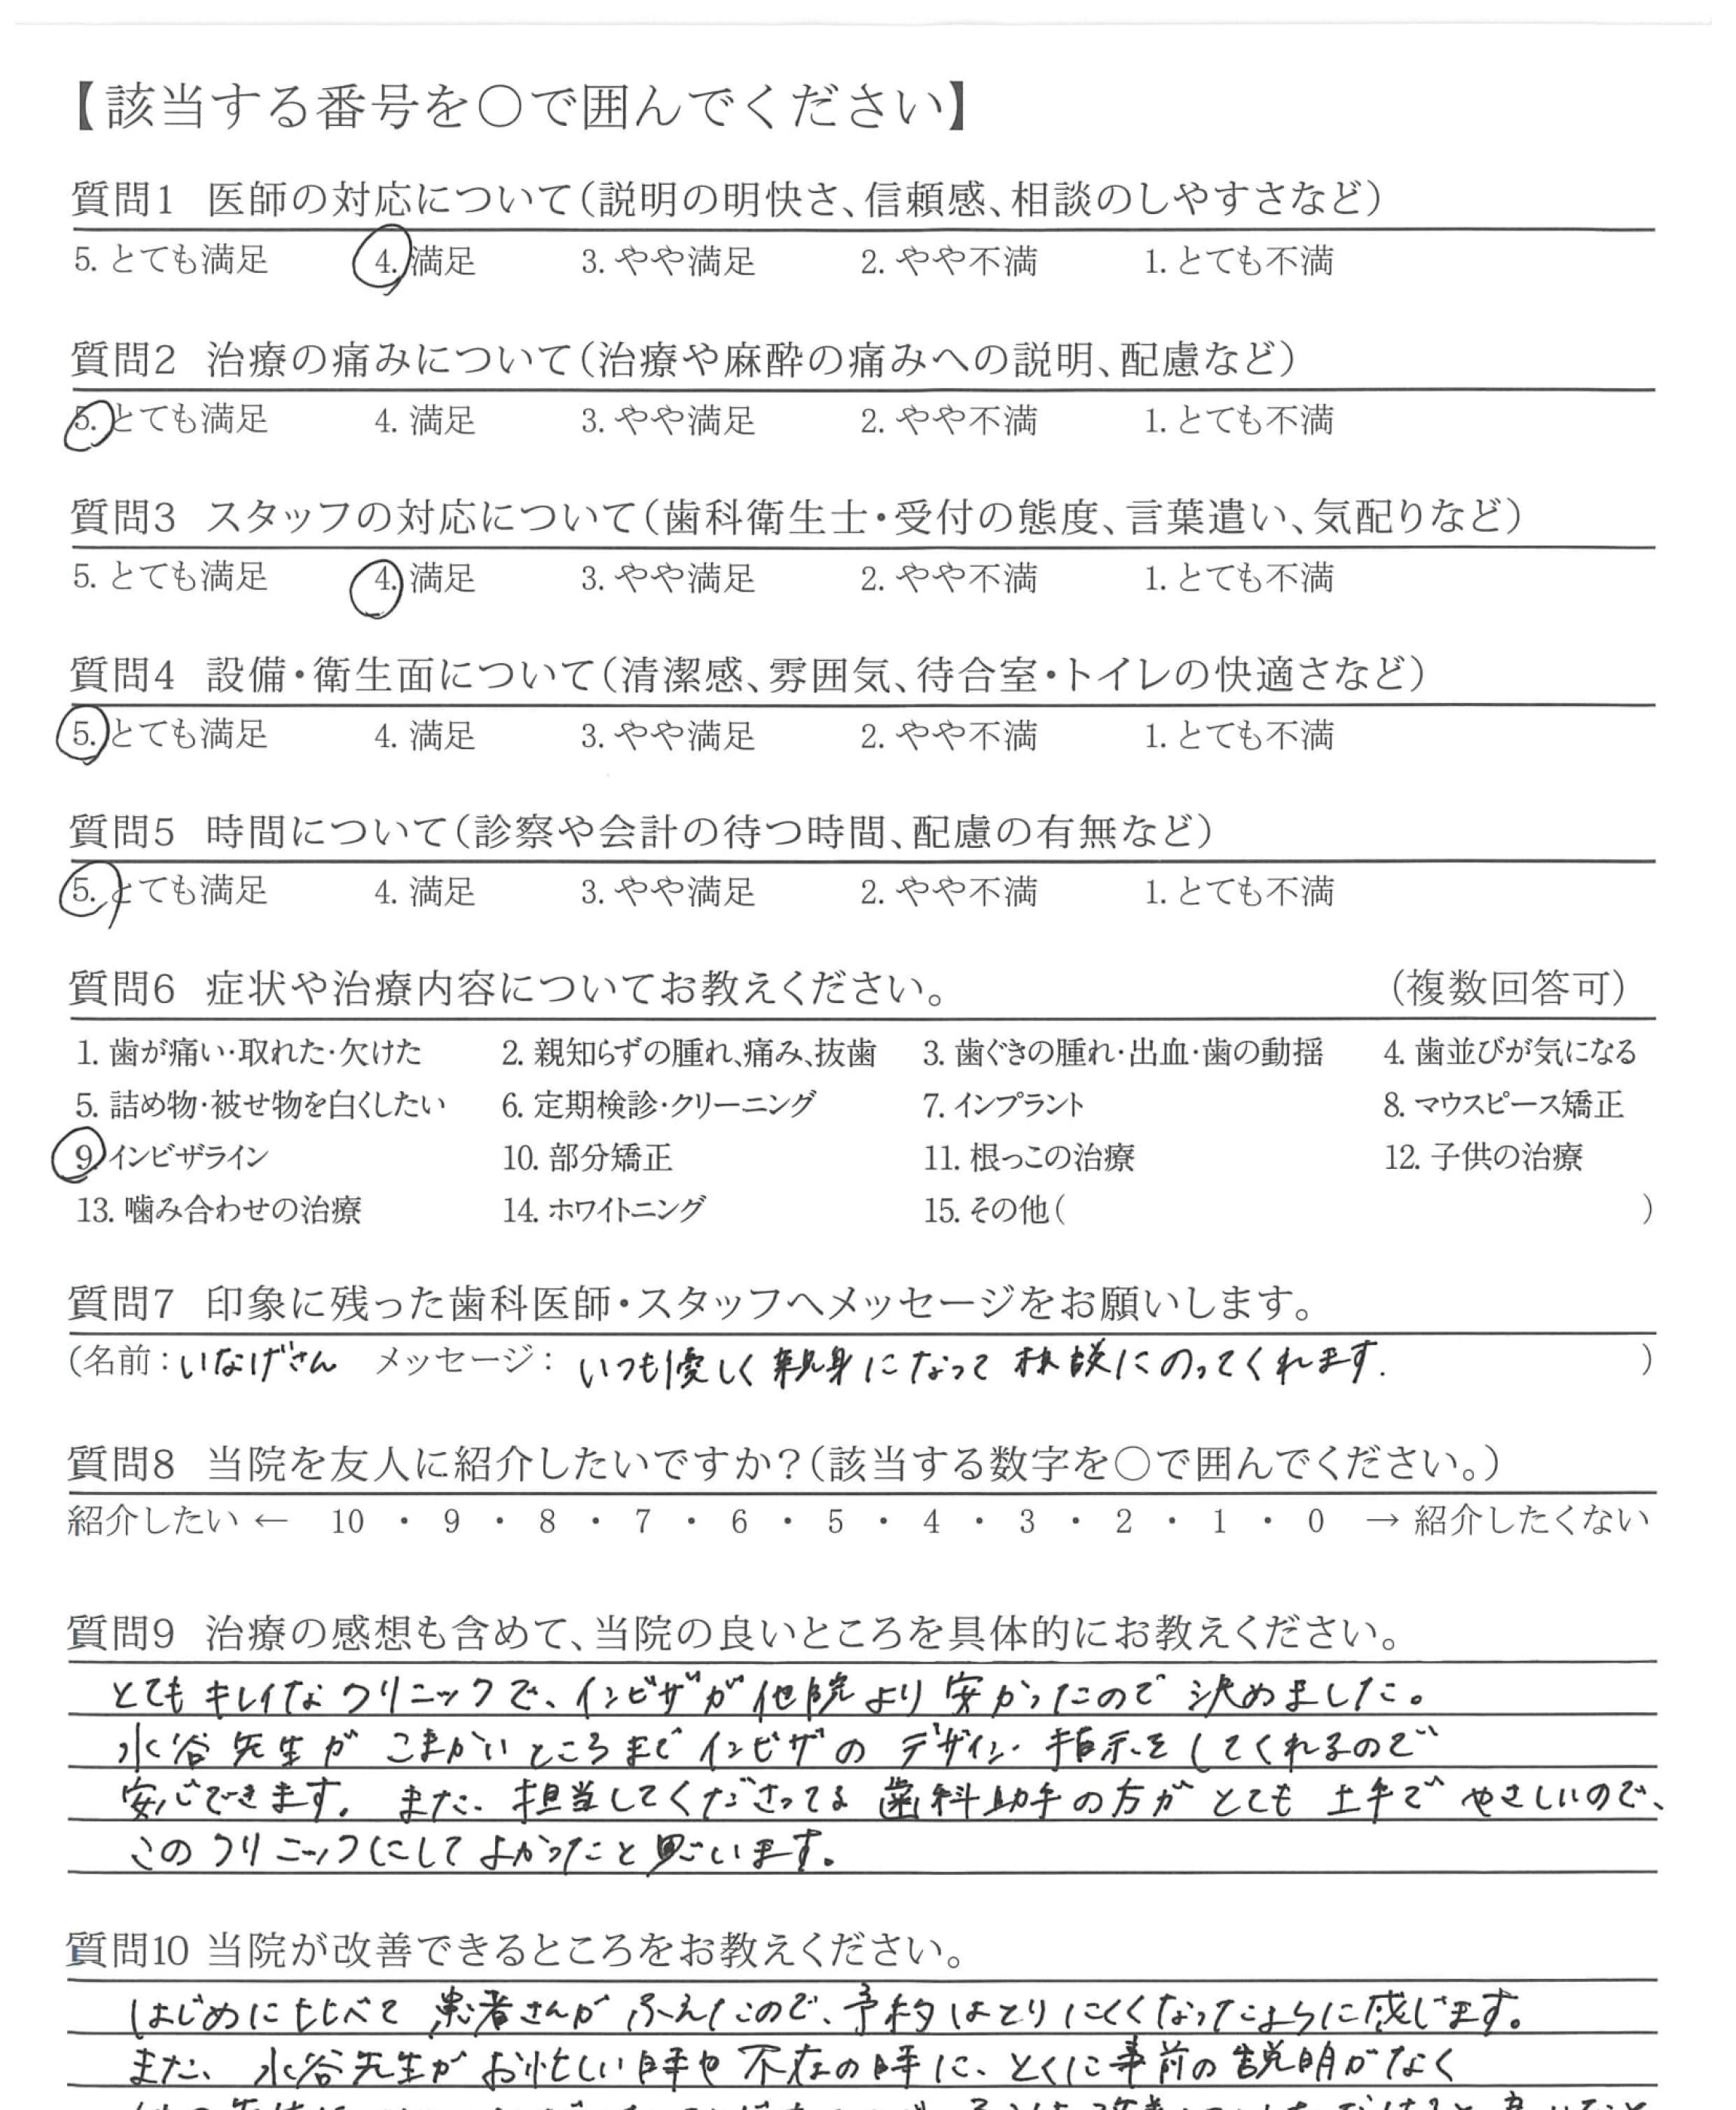 【該当する番号を○で囲んでください】
質問1 医師の対応について(説明の明快さ、信頼感、相談のしやすさなど)
5. とても満足 4. 満足 3. やや満足 2. やや不満 1. とても不満
質問2 治療の痛みについて(治療や麻酔の痛みへの説明、配慮など)
5. とても満足 4. 満足 3. やや満足 2. やや不満 1. とても不満
質問3 スタッフの対応について(歯科衛生士・受付の態度、言葉遣い、気配りなど)
5. とても満足 4. 満足 3. やや満足 2. やや不満 1. とても不満
質問4 設備・衛生面について(清潔感、雰囲気、待合室・トイレの快適さなど)
5. とても満足 4. 満足 3. やや満足 2. やや不満 1. とても不満
質問5 時間について(診察や会計の待つ時間、配慮の有無など)
5. とても満足 4. 満足 3. やや満足 2. やや不満 1. とても不満
質問6 症状や治療内容についてお教えください。 (複数回答可)
1. 歯が痛い・取れた・欠けた 2. 親知らずの腫れ、痛み、抜歯 3. 歯ぐきの腫れ・出血・歯の動揺 4. 歯並びが気になる
5. 詰め物・被せ物を白くしたい 6. 定期検診・クリーニング 7. インプラント 8. マウスピース矯正
9. インビザライン 10. 部分矯正 11. 根っこの治療 12. 子供の治療
13. 噛み合わせの治療 14. ホワイトニング 15. その他( )
質問7 印象に残った歯科医師・スタッフへメッセージをお願いします。
(名前:いなげさん メッセージ: いつも優しく親身になって相談にのってくれます. )
質問8 当院を友人に紹介したいですか?(該当する数字を○で囲んでください。)
紹介したい ← 10 ・ 9 ・ 8 ・ 7 ・ 6 ・ 5 ・ 4 ・ 3 ・ 2 ・ 1 ・ 0 → 紹介したくない
質問9 治療の感想も含めて、当院の良いところを具体的にお教えください。
とてもキレイなクリニックで、インビザが他院より安かったので決めました。
水谷先生がこまかいところまでインビザのデザイン指示をしてくれるので
安心できます。また、担当してくださってる歯科助手の方がとても上手でやさしいので、
このクリニックにしてよかったと思います。
質問10 当院が改善できるところをお教えください。
はじめに比べて患者さんがふえたので、予約はとりにくくなったように感じます。
また、水谷先生がお忙しい時や不在の時に、とくに事前の説明がなく